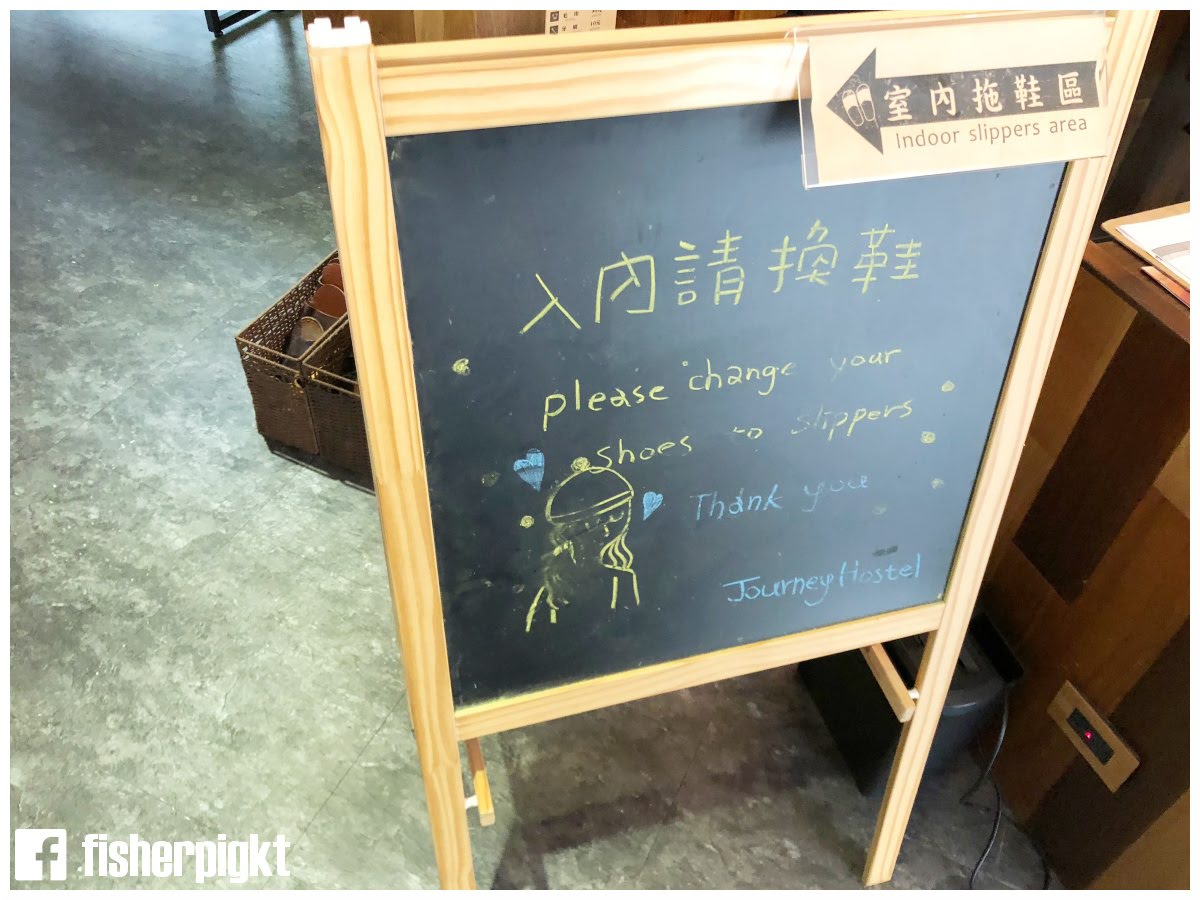 牙刷 10元
室內拖鞋區
Indoor slippers area
入內請換鞋
please change your
shoes to slippers
Thank you
Journey Hostel
f fisherpigkt